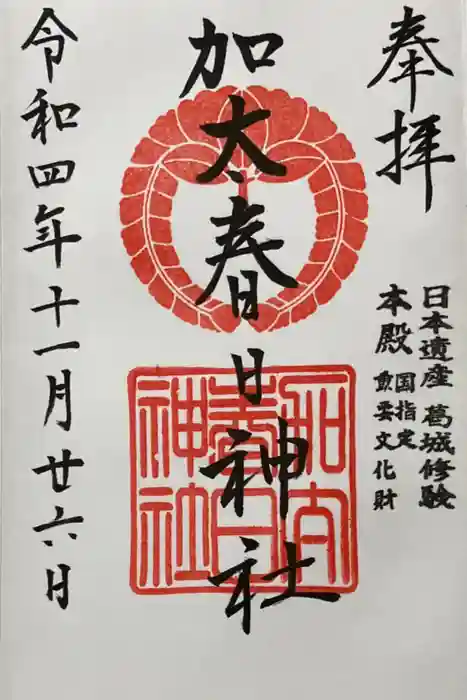 奉拝
日本遺産 葛城修験
本殿 国指定
重要文化財
加太春日神社
加太春日神社
令和四年十一月廿六日